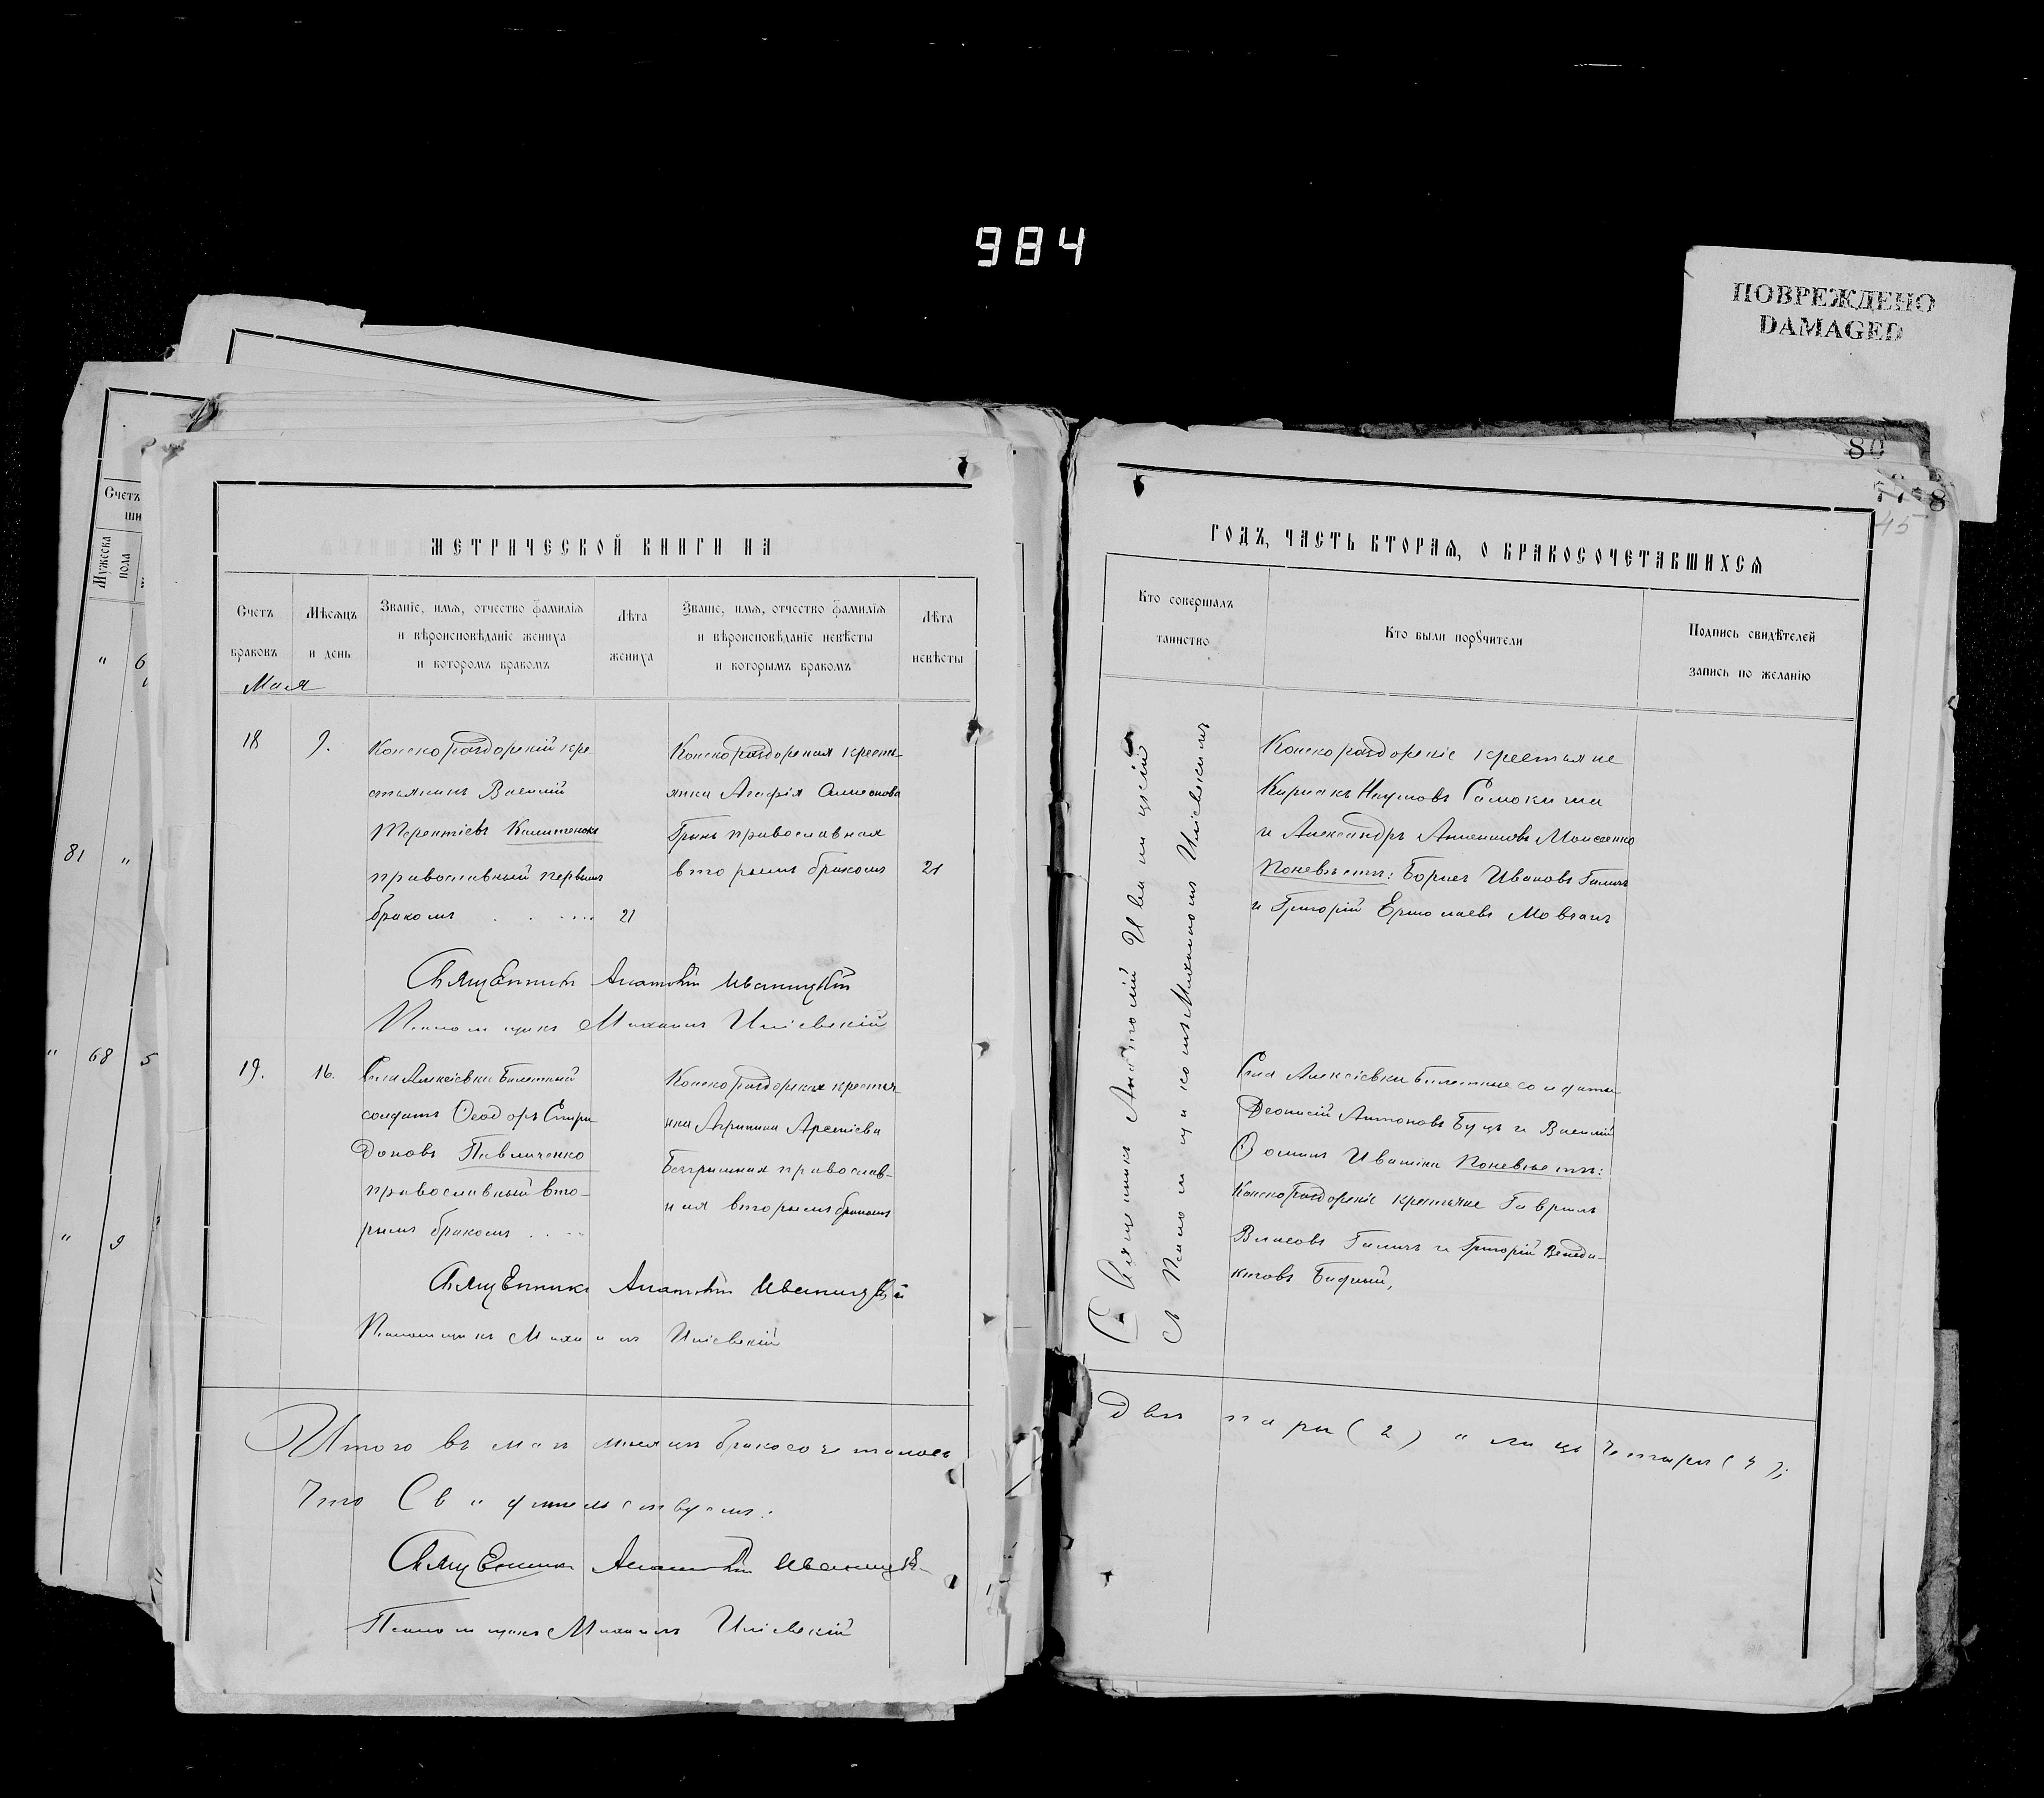 984
ПОВРЕЖДЕНО
DAMAGED
80
45
Счетъ
Мужеска
пола
" 6
81 "
" 68 5
" 9
МЕТРИЧЕСКОЙ КНИГИ НА
Счетъ браковъ
Мѣсяцъ и день
Званіе, имя, отчество фамилія
и вѣроисповѣданіе жениха
и которомъ бракомъ
Лѣта жениха
Званіе, имя, отчество фамилія
и вѣроисповѣданіе невѣсты
и которымъ бракомъ
Лѣта невѣсты
Мая
18 9.
Конскораздорскій кре
стьянинъ Василій
Терентіевъ
православный первымъ
бракомъ . . . . . 21
Конскораздорская кресть-
янка Агафія Симеонова
Гринь православная
вторымъ бракомъ 21
Священникъ Анатолій Иваницкій
Псаломщикъ Михаилъ Иліевскій
19. 16.
Села Алексѣевки Билетный
солдатъ Ѳеодоръ Спири
доновъ Павличенко
православный вто-
рымъ бракомъ . . . .
Конскораздорская крестья
нка Агрипина Арсеніева
православ-
ная вторымъ бракомъ
Священникъ Анатолій Иваницкій
Псаломщикъ Михаилъ Иліевскій
Итого въ маѣ мѣсяцѣ бракосочеталось
Что Свидѣтельствуемъ:
Священникъ Анатолій Иваницкій
Псаломщикъ Михаилъ Иліевскій
ГОДЪ, ЧАСТЬ ВТОРАЯ, О БРАКОСОЧЕТАВШИХСЯ
Кто совершалъ
таинство
Кто были поручители
Подпись свидѣтелей
запись по желанію
Священникъ Анатолій Иваницкій
съ Псаломщикомъ Михаиломъ Иліевскимъ
Конскораздорскіе крестьяне
Киріакъ Наумовъ Самокиша
и Александръ Моисеенко
Поневѣстѣ: Борисъ Ивановъ Галичъ
и Григорій Ермолаевъ Мовчанъ
Села Алексѣевки Билетные солдаты
Деонисій Антоновъ Буцъ и Василій
Ѳоминъ Ивашина Поневѣстѣ:
Конскораздорскіе крестьяне Гавріилъ
Власовъ Галичъ и Григорій Венеди-
ктовъ Бидный,
Двѣ пары (2) и лицъ Четыре (4);